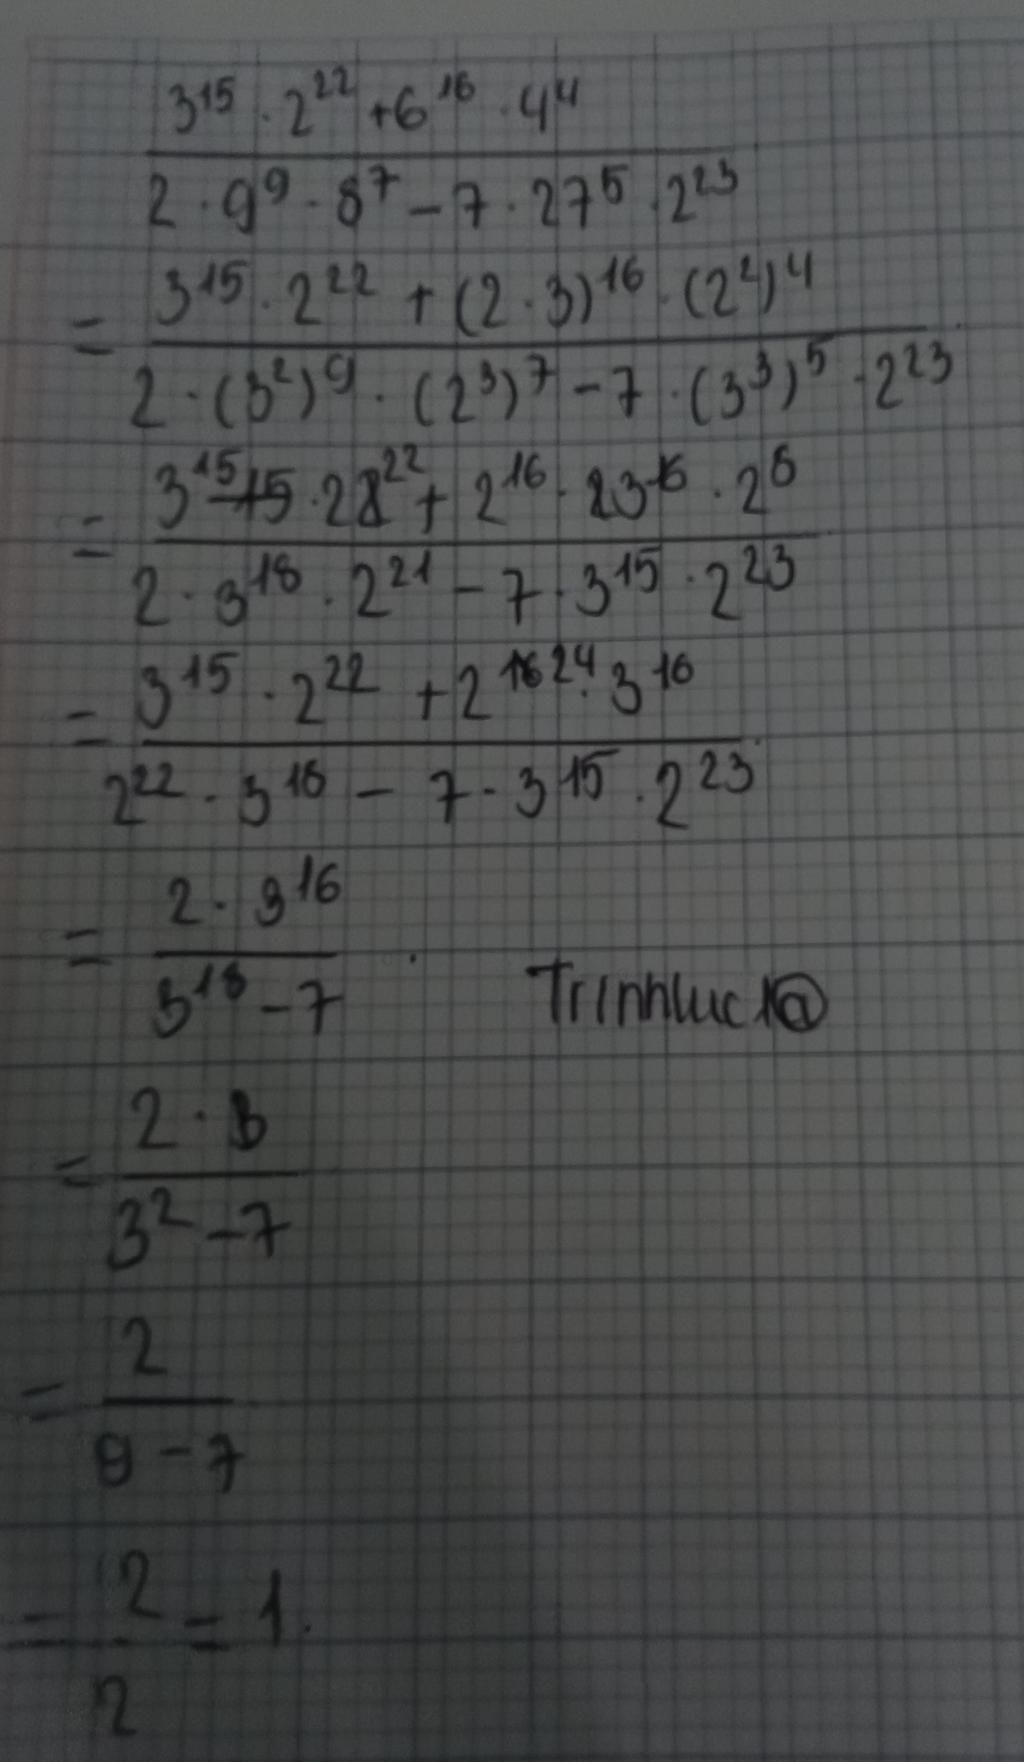 3^15 · 2^22 + 6^16 · 4^4
2 · 9^9 · 8^7 - 7 · 27^5 · 2^23
= 3^15 · 2^22 + (2 · 3)^16 · (2^2)^4
2 · (3^2)^9 · (2^3)^7 - 7 · (3^3)^5 · 2^23
= 3^15 · 2^22 + 2^16 · 3^16 · 2^8
2 · 3^18 · 2^21 - 7 · 3^15 · 2^23
= 3^15 · 2^22 + 2^24 · 3^16
2^22 · 3^18 - 7 · 3^15 · 2^23
= 2 · 3^16
3^18 - 7
Trinhluc1@
= 2 ·
3^2 - 7
= 2
9 - 7
= 2 = 1.
2